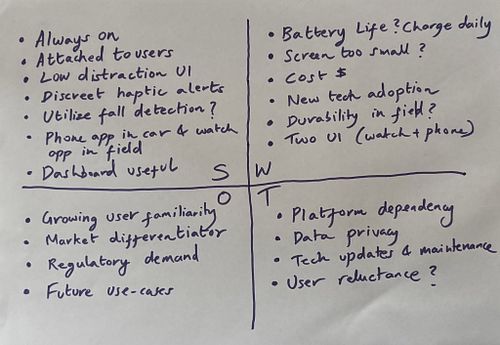 • Always on
• Attached to users
• Low distraction UI
• Discreet haptic alerts
• Utilize fall detection?
• Phone app in car & watch
app in field
• Dashboard useful
S
• Battery Life? Charge daily
• Screen too small?
• Cost $
• New tech adoption
• Durability in field?
• Two UI (watch + phone)
W
O
• Growing user familiarity
• Market differentiator
• Regulatory demand
• Future use-cases
T
• Platform dependency
• Data privacy
• Tech updates & maintenance
• User reluctance?